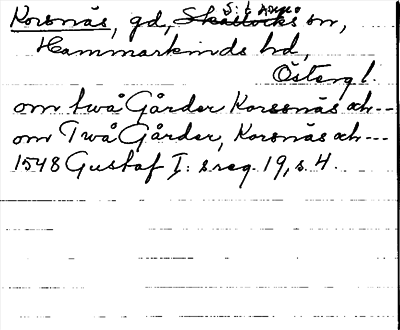 Korsnäs, gd, Skällviks sn,
S:t Anna
Hammarkinds hd,
Östergl.
om twå Gårder Korssnäs och ---
om Twå Gårder, Korsnäs och ---
1548 Gustaf I: s reg. 19, s. 4.